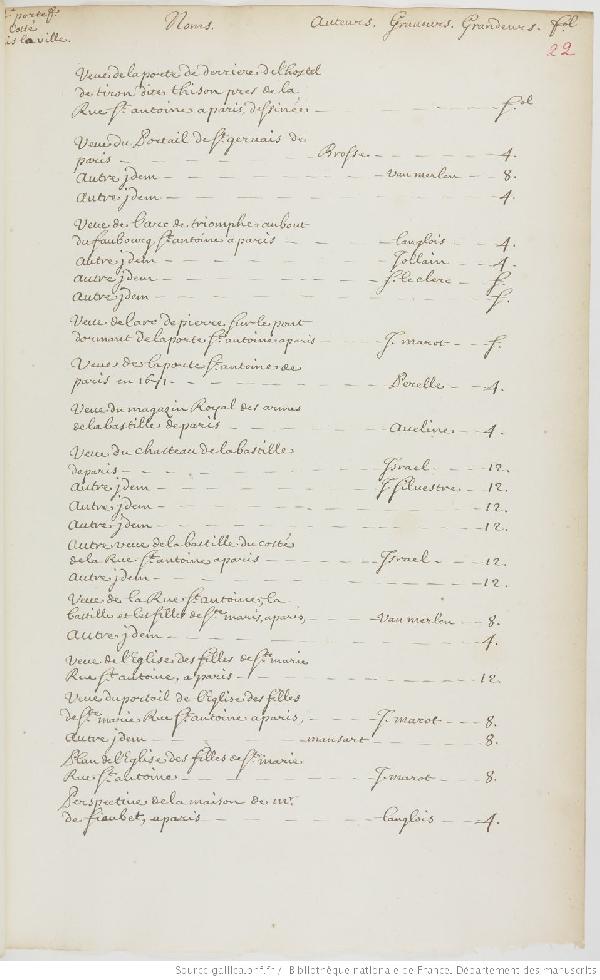 portef.
Costé
la ville.
Noms. Auteurs. Graueurs. Grandeurs. fol
22
Veue de la porte de derriere de l'hostel
de tiron dite thison pres de la
Rue St. antoine a paris, dessinée — fol
Veue du Portail de St. geruais de
paris — Brosse — 4.
Autre jdem — Van merlen — 8.
Autre jdem — 4.
Veue de l'arc de triomphe au bout
du faubourg St. antoine a paris — Langlois — 4.
Autre jdem — Jollain — 4.
autre jdem — S. le clerc — f.
Autre jdem — f.
Veue de l'arc de pierre sur le pont
dormant de la porte St. antoine a paris — J. marot — f.
Veue de la porte St. antoine de
paris en 1671 — Perelle — 4.
Veue du magazin Royal des armes
de la bastille de paris — Aueline — 4.
Veue du chasteau de la bastille
de paris — Israel — 12.
Autre jdem — J. Siluestre — 12.
Autre jdem — 12.
Autre jdem — 12.
Autre veue de la bastille du costé
de la Rue St. antoine a paris — Israel — 12.
Autre jdem — 12.
Veue de la Rue St. antoine, la
bastille et les filles de Ste. marie, a paris, — Van merlen — 8.
Autre jdem — 4.
Veue de l'Eglise des filles de Ste. marie
Rue St. antoine, a paris — 12.
Veue du portail de l'Eglise des filles
de Ste. marie Rue St. antoine a paris, — J. marot — 8.
Autre jdem — mansart — 8.
Plan de l'Eglise des filles de St. marie
Rue St. antoine — J. marot — 8.
Perspectiue de la maison de mr.
de fieubet, a paris — Langlois — 4.
Source gallica.bnf.fr / Bibliothèque nationale de France. Département des manuscrits